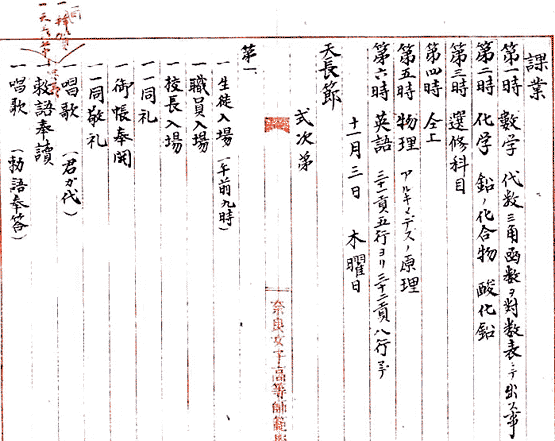 課業
第一時 数学 代数 三角函数ヲ対数表ニテ出ス事
第二時 化学 鉛ノ化合物 酸化鉛
第三時 選修科目
第四時 仝上
第五時 物理 アルキメデスノ原理
第六時 英語 三十一頁五行ヨリ三十二頁八行マデ
十一月三日 木曜日
天長節
式次第
奈良女子高等師範学
第一
一生徒入場(午前九時)
一職員入場
一校長入場
一一同礼
一御帳奉開
一一同敬礼
一唱歌 (君が代)
一敕語奉讀
一唱歌 (勅語奉答)